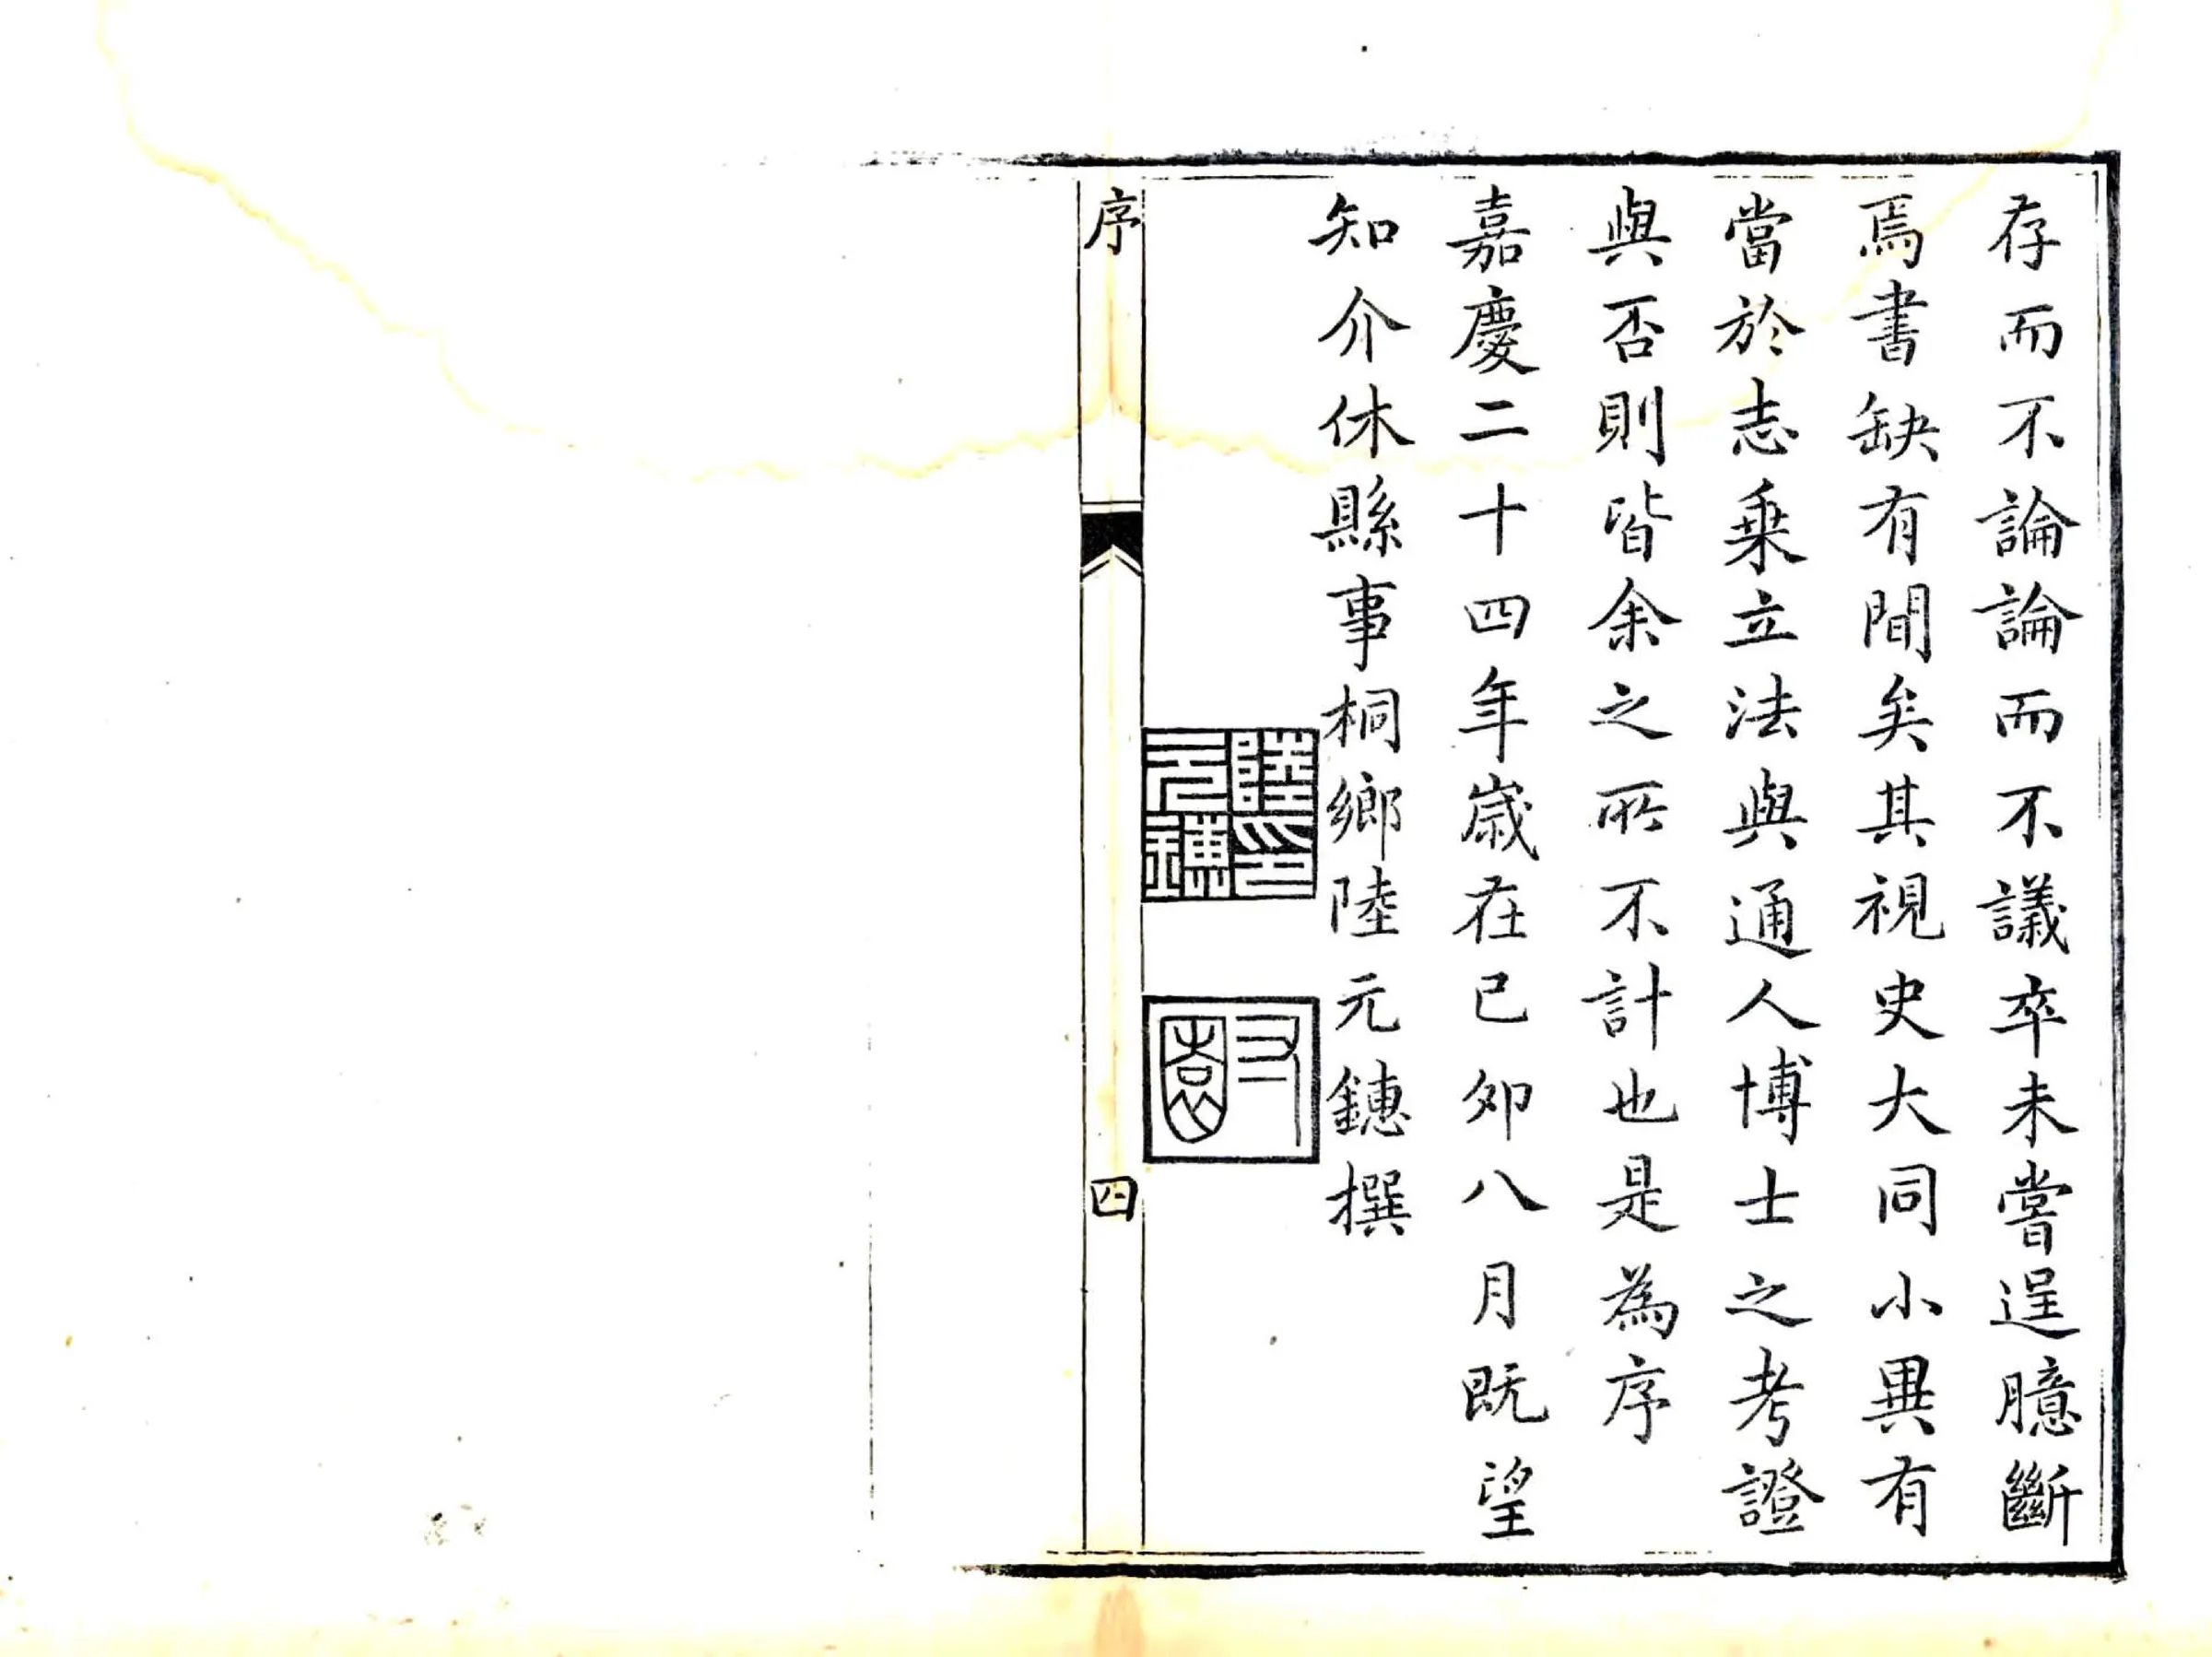 存而不論論而不議卒未嘗逞臆斷
焉書缺有間矣其視史大同小異有
當於志乘立法與通人博士之考證
與否則皆余之所不計也是為序
嘉慶二十四年歲在己卯八月既望
知介休縣事桐鄉陸元鏸撰
陸印元鏸
序
四